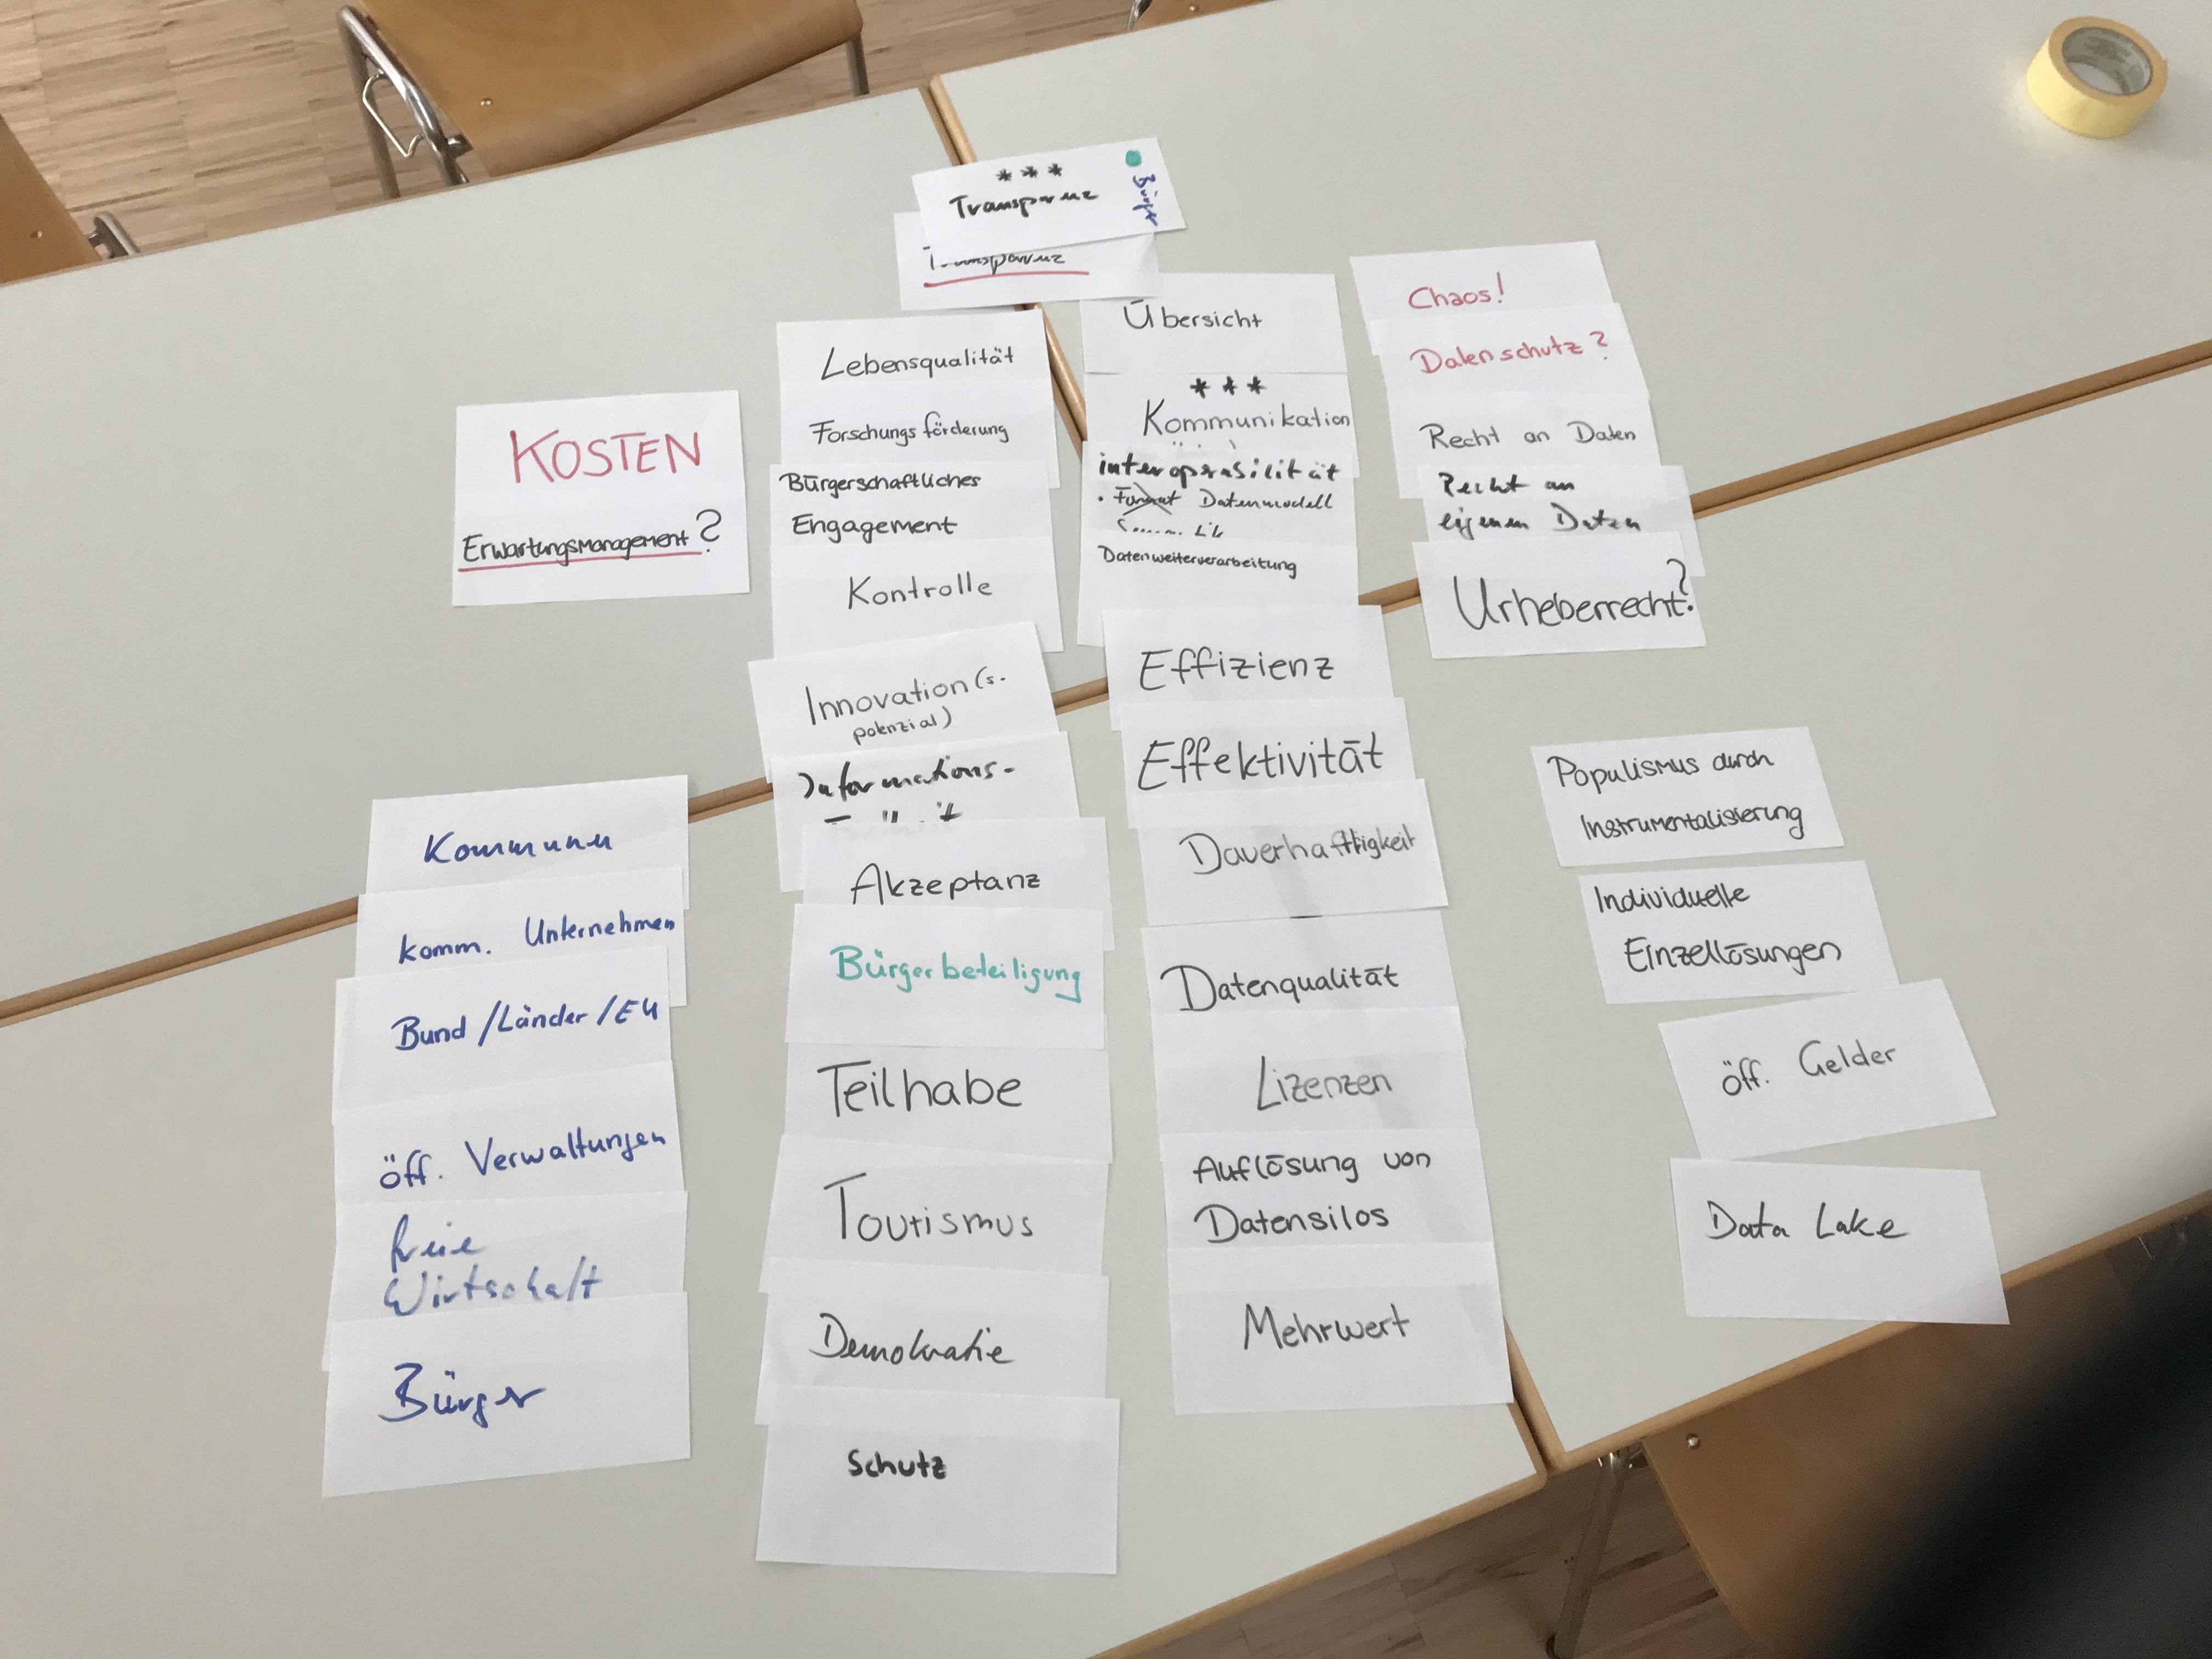 ***
Transparenz
Bürger
Transparenz
KOSTEN
Erwartungsmanagement?
Kommunen
komm. Unternehmen
Bund/Länder/EU
öff. Verwaltungen
freie
Wirtschaft
Bürger
Lebensqualität
Forschungsförderung
Bürgerschaftliches
Engagement
Kontrolle
Innovation(s-
potenzial)
Informations-
Akzeptanz
Bürgerbeteiligung
Teilhabe
Tourismus
Demokratie
Schutz
Übersicht
***
Kommunikation
interoprabilität
• Format Datenmodell
Datenweiterverarbeitung
Effizienz
Effektivität
Dauerhaftigkeit
Datenqualität
Lizenzen
Auflösung von
Datensilos
Mehrwert
Chaos!
Datenschutz?
Recht an Daten
Recht an
eigenen Daten
Urheberrecht?
Populismus durch
Instrumentalisierung
Individuelle
Einzellösungen
öff. Gelder
Data Lake